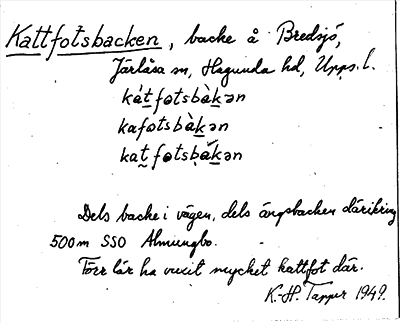 Kattfotsbacken, backe å Bredsjö,
Järlåsa sn, Hagunda hd, Upps. l.
kát fotsbàkən
kafotsbàkən
kat fotsbákən
Dels backe i vägen, dels ängsbacken därikring
500 m SSO Almungbo.
Förr lär ha vuxit mycket kattfot där.
K.-H. Tapper 1949.